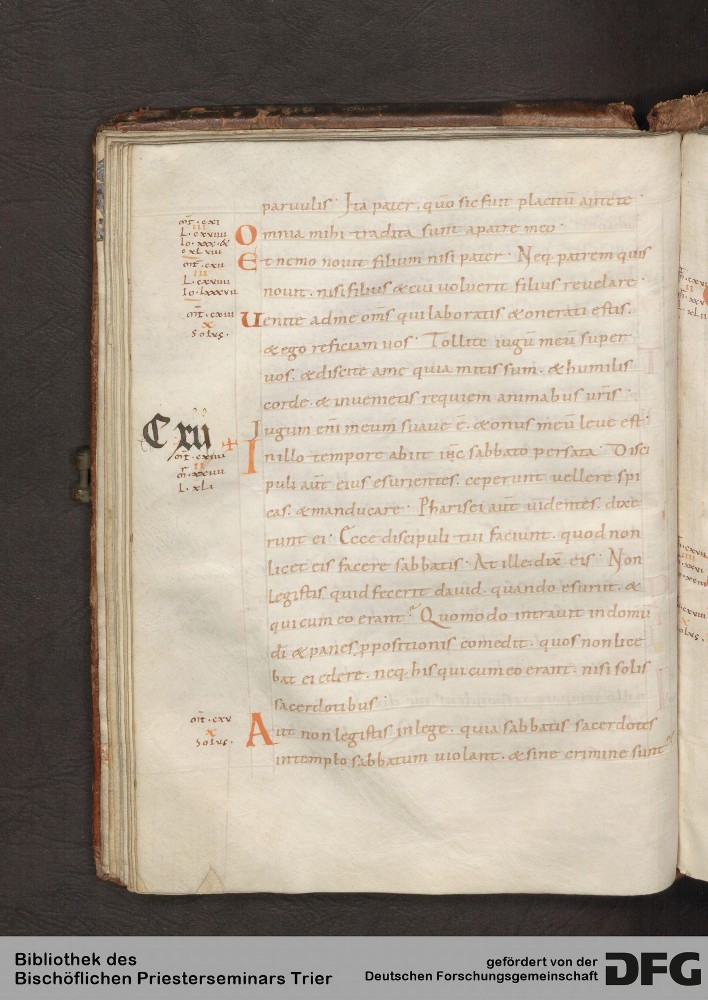 paruulis · Ita pater · quō sic fuit placitū ante te ·
Omnia mihi tradita sunt apatre meo ·
Et nemo nouit filium nisi pater · Neq· patrem quis
nouit · nisi filius & cui uoluerit filius reuelare ·
Uenite adme om̄s qui laboratis & onerati estis ·
& ego reficiam uos · Tollite iugū meū super
uos · & discite ame quia mitis sum · & humilis
corde · & inuenietis requiem animabus ur̄is ·
Iugum eni meum suaue ē · & onus meū leue est ·
In illo tempore abiit ih̄c sabbato persata · Disci
puli aut̄ eius esurientes · ceperunt uellere spi
cas · & manducare · Pharisei aut̄ uidentes · dixe
runt ei · Ecce discipuli tui faciunt · quod non
licet eis facere sabbatis · At ille · dix̄ eis · Non
legistis quid fecerit dauid · quando esuriit · &
qui cum eo erant · Quomodo intrauit indomū
dī & panes ppositionis comedit · quos non lice
bat ei edere · neq· his qui cum eo erant · nisi solis
sacerdotibus ·
Aut non legistis inlege · quia sabbatis sacerdotes
intemplo sabbatum uiolant · & sine crimine sunt
mt̄ · cxi
iii
L · cxviiii
Io · xxx · &
cxlviii
mt̄ · cxii
iii
L · cxviiii
Io · lxxxvii
mt̄ · cxiii
x
Solus ·
Cxii
mt̄ · cxiiii
ii
L · xli
mt̄ · cxv
x
Solus ·
Bibliothek des
Bischöflichen Priesterseminars Trier
gefördert von der
Deutschen Forschungsgemeinschaft
DFG